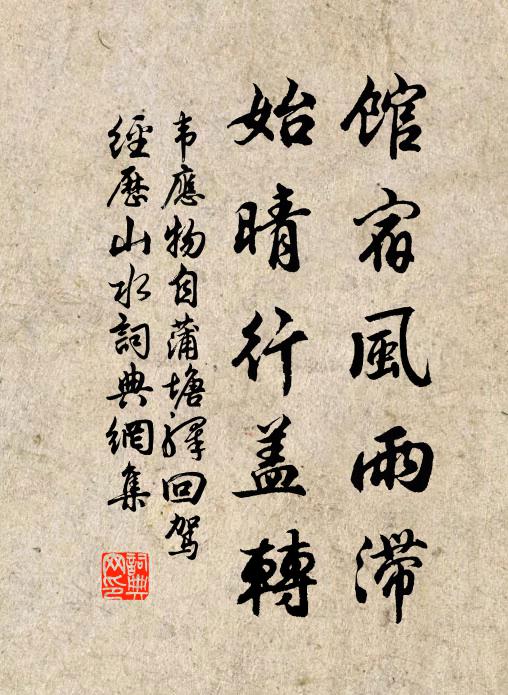 馆宿風雨滞
始晴行盖轉
韦應物自蒲塘驛回駕
經歷山水詞典網集
詞典
网印